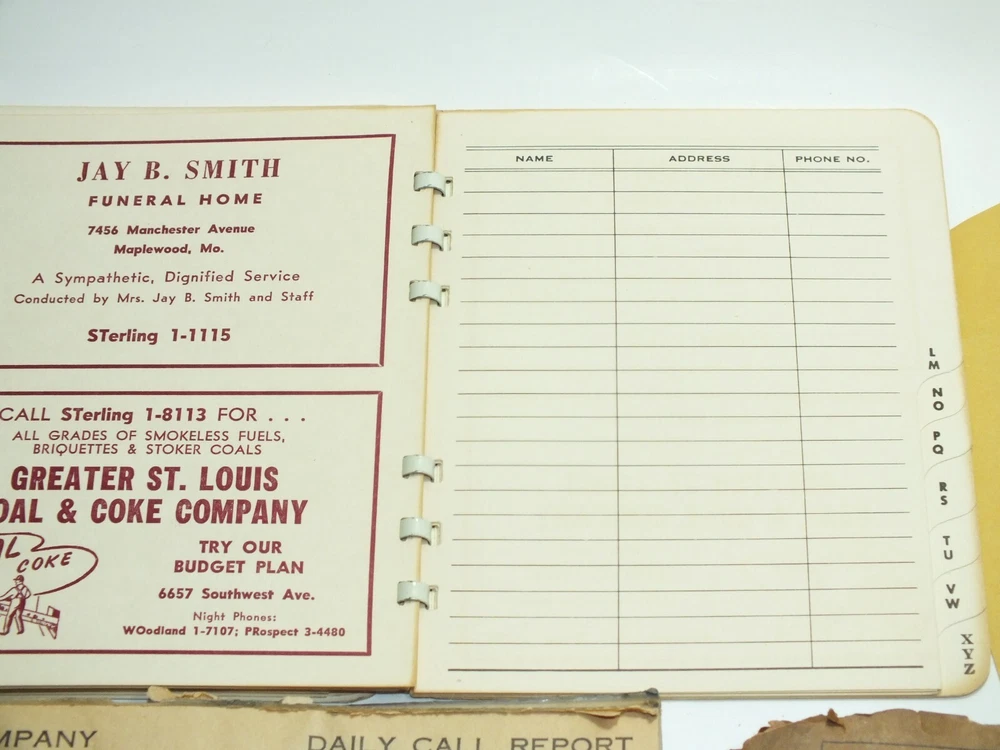 JAY B. SMITH
FUNERAL HOME
7456 Manchester Avenue
Maplewood, Mo.
A Sympathetic, Dignified Service
Conducted by Mrs. Jay B. Smith and Staff
STerling 1-1115
CALL STerling 1-8113 FOR . . .
ALL GRADES OF SMOKELESS FUELS,
BRIQUETTES & STOKER COALS
GREATER ST. LOUIS
OAL & COKE COMPANY
AL
COKE
TRY OUR
BUDGET PLAN
6657 Southwest Ave.
Night Phones:
WOodland 1-7107; PRospect 3-4480
NAME ADDRESS PHONE NO.
L
M
N
O
P
Q
R
S
T
U
V
W
X
Y
Z
MPANY DAILY CALL REPORT